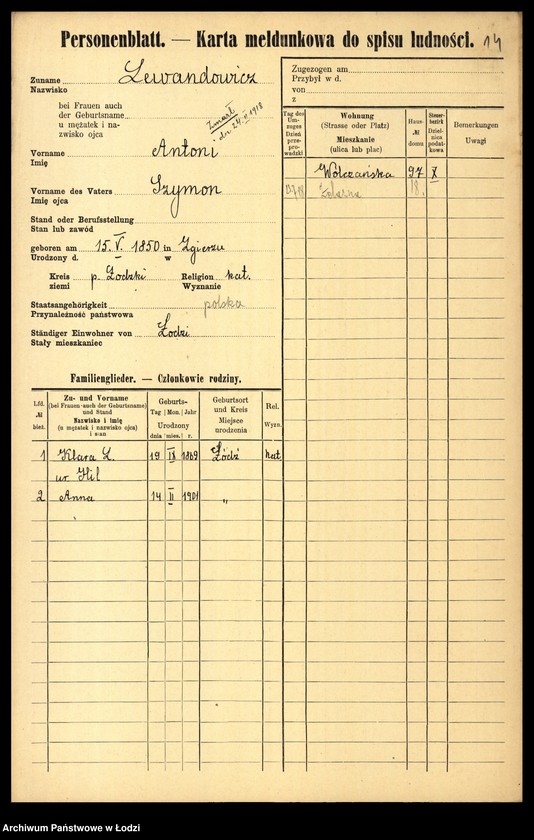 Personenblatt. — Karta meldunkowa do spisu ludności. 14
Zuname Lewandowicz
Nazwisko
bei Frauen auch
der Geburtsname
u mężatek i na-
zwisko ojca
Zmarł
dn. 24.II 1918
Vorname Antoni
Imię
Vorname des Vaters Szymon
Imię ojca
Stand oder Berufsstellung
Stan lub zawód
geboren am 15. V. 1850 in Zgierzu
Urodzony d. w
Kreis p. Łodzki Religion kat.
ziemi Wyznanie
Staatsangehörigkeit polska
Przynależność państwowa
Ständiger Einwohner von Łodzi
Stały mieszkaniec
Zugezogen am
Przybył w d.
von
z
Tag des Um-zuges Dzień prze-prowadzki
Wohnung (Strasse oder Platz) Mieszkanie (ulica lub plac)
Haus-№ domu
Steuer-bezirk Dziel-nica podat-kowa
Bemerkungen Uwagi
Wólczańska 97 X
18.
Familienglieder. — Członkowie rodziny.
Lfd. № bież.
Zu- und Vorname (bei Frauen auch der Geburtsname) und Stand Nazwisko i imię (u mężatek i nazwisko ojca) i stan
Geburts- Tag Mon. Jahr Urodzony dnia mies. r.
Geburtsort und Kreis Miejsce urodzenia
Rel. Wyzn.
1 Klara L. 19 IX 1869 Łódź kat.
ur. Hil
2 Anna 14 II 1901 "
Archiwum Państwowe w Łodzi